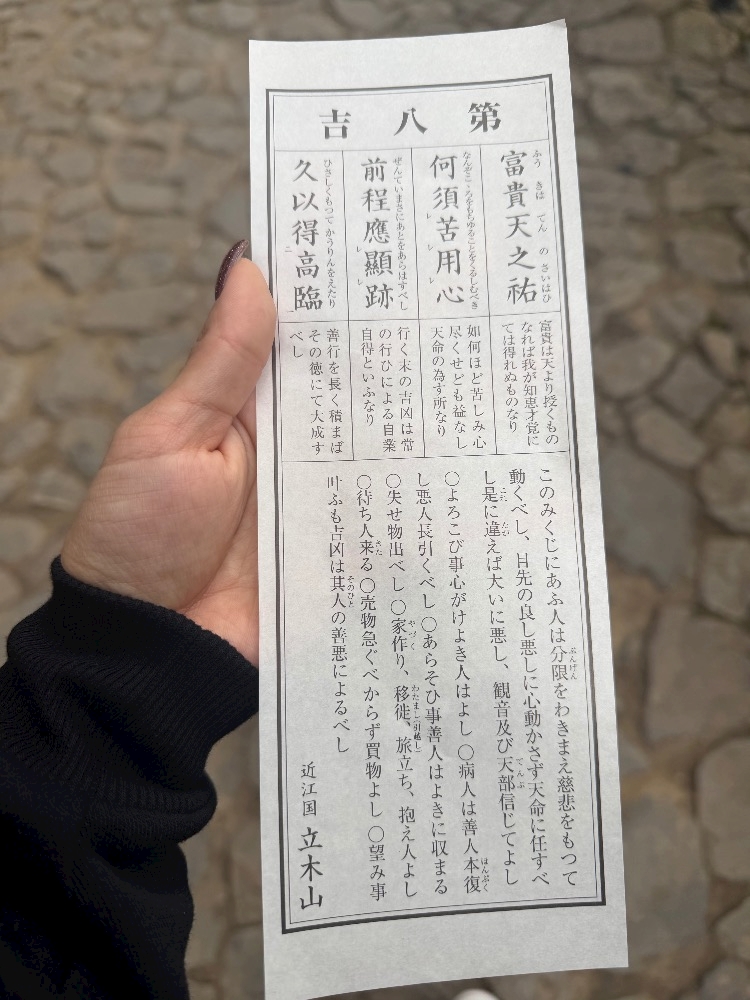 第八吉
富貴天之祐
ふうきはてんのさいはひ
何須苦用心
なんぞこゝろをもちゆることをくるしむべき
前程應顯跡
ぜんていまさにあとをあらはすべし
久以得高臨
ひさしくもつてかうりんをえたり
富貴は天より授くもの
なれば我が知恵才覚に
ては得れぬものなり
如何ほど苦しみ心
尽くせども益なし
天命の為す所なり
行く末の吉凶は常
の行ひによる自業
自得といふなり
善行を長く積まば
その徳にて大成す
べし
このみくじにあふ人は分限をわきまえ慈悲をもつて
動くべし、目先の良し悪しに心動かさず天命に任すべ
し是に違えば大いに悪し、観音及び天部信じてよし
〇よろこび事心がけよき人はよし〇病人は善人本復
し悪人長引くべし〇あらそひ事善人はよきに収まる
〇失せ物出べし〇家作り、移徙、旅立ち、抱え人よし
〇待ち人来る〇売物急ぐべからず買物よし〇望み事
叶ふも吉凶は其人の善悪によるべし
近江国 立木山